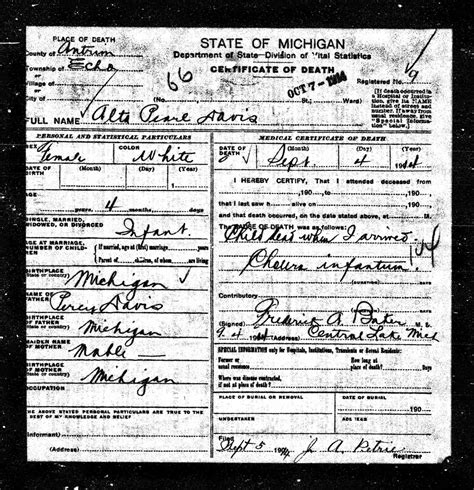 PLACE OF DEATH
County of Antrim
Township of Echo
Village of
City of
STATE OF MICHIGAN
Department of State—Division of Vital Statistics
CERTIFICATE OF DEATH
66
OCT 7 - 1914
Registered No. 9
(No. Ward)
(If death occurred in a Hospital or Institution, give its NAME instead of street and number. If away from usual residence, give "Special Information" below.)
FULL NAME Alta Pearl Davis
PERSONAL AND STATISTICAL PARTICULARS
SEX Female COLOR White
DATE OF BIRTH (Month) (Day) (Year) 1
AGE years 4 months days
SINGLE, MARRIED, WIDOWED OR DIVORCED Infant
AGE AT MARRIAGE, NUMBER OF CHILDREN
If married, age at (first) marriage years
Parent of children, of whom are living
BIRTHPLACE (State or country) Michigan
NAME OF FATHER Percy Davis
BIRTHPLACE OF FATHER (State or country) Michigan
MAIDEN NAME OF MOTHER Mable
BIRTHPLACE OF MOTHER (State or country) Michigan
OCCUPATION
THE ABOVE STATED PERSONAL PARTICULARS ARE TRUE TO THE BEST OF MY KNOWLEDGE AND BELIEF
(Informant)
(Address)
MEDICAL CERTIFICATE OF DEATH
DATE OF DEATH Sept. 4 1914
(Month) (Day) (Year)
I HEREBY CERTIFY, That I attended deceased from
190 to 190
that I last saw h alive on 190
and that death occurred, on the date stated above, at M.
The CAUSE OF DEATH was as follows:
Child dead when I arrived
Cholera infantum
Contributory
(Signed) Frederick A. Baker M. D.
9-1914 (Address) Central Lake Mich
SPECIAL INFORMATION only for Hospitals, Institutions, Transients or Recent Residents:
Former or usual residence
How long at place of death? Days
Where was disease contracted, if not at place of death?
PLACE OF BURIAL OR REMOVAL
DATE OF BURIAL
190
UNDERTAKER
ADDRESS
Filed Sept 5 1914 J. A. Petrie
Registrar